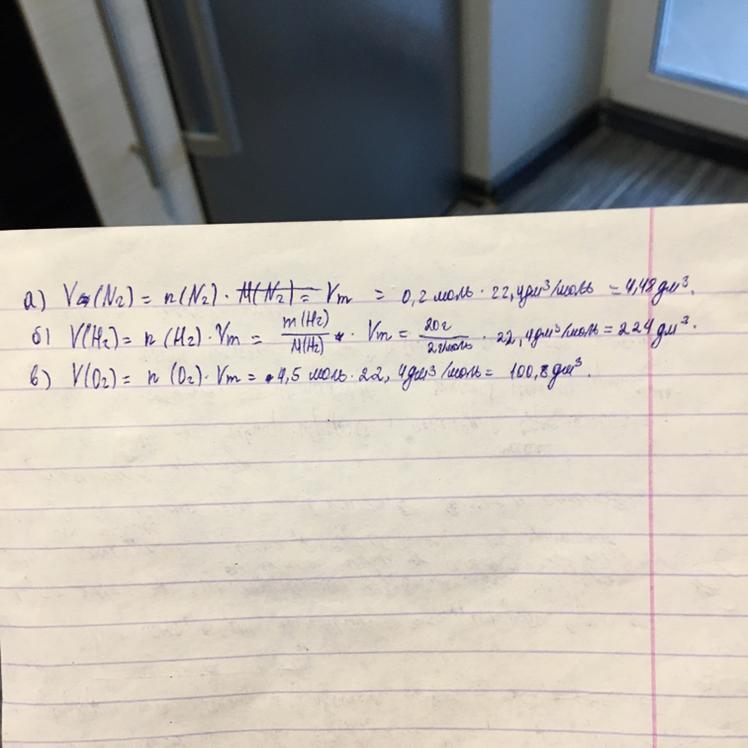 а) V(N₂) = n(N₂) · M(N₂) = Vm = 0,2 моль · 22,4 дм³/моль = 4,48 дм³.
б) V(H₂) = n (H₂) · Vm = m(H₂)/M(H₂) · Vm = 20г/2г/моль · 22,4 дм³/моль = 224 дм³.
в) V(O₂) = n (O₂) · Vm = 4,5 моль · 22,4 дм³/моль = 100,8 дм³.